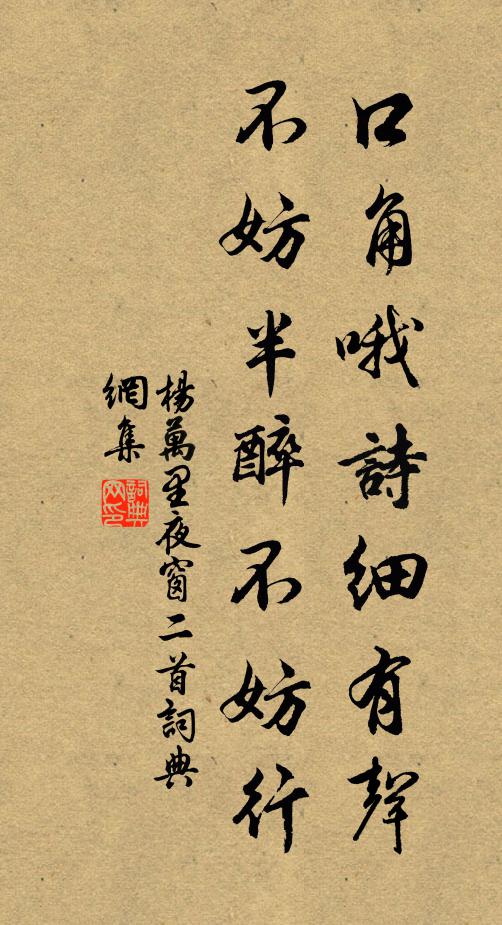 口角哦詩細有聲
不妨半醉不妨行
楊萬里夜窗二首詞典
網集
詞典
网印